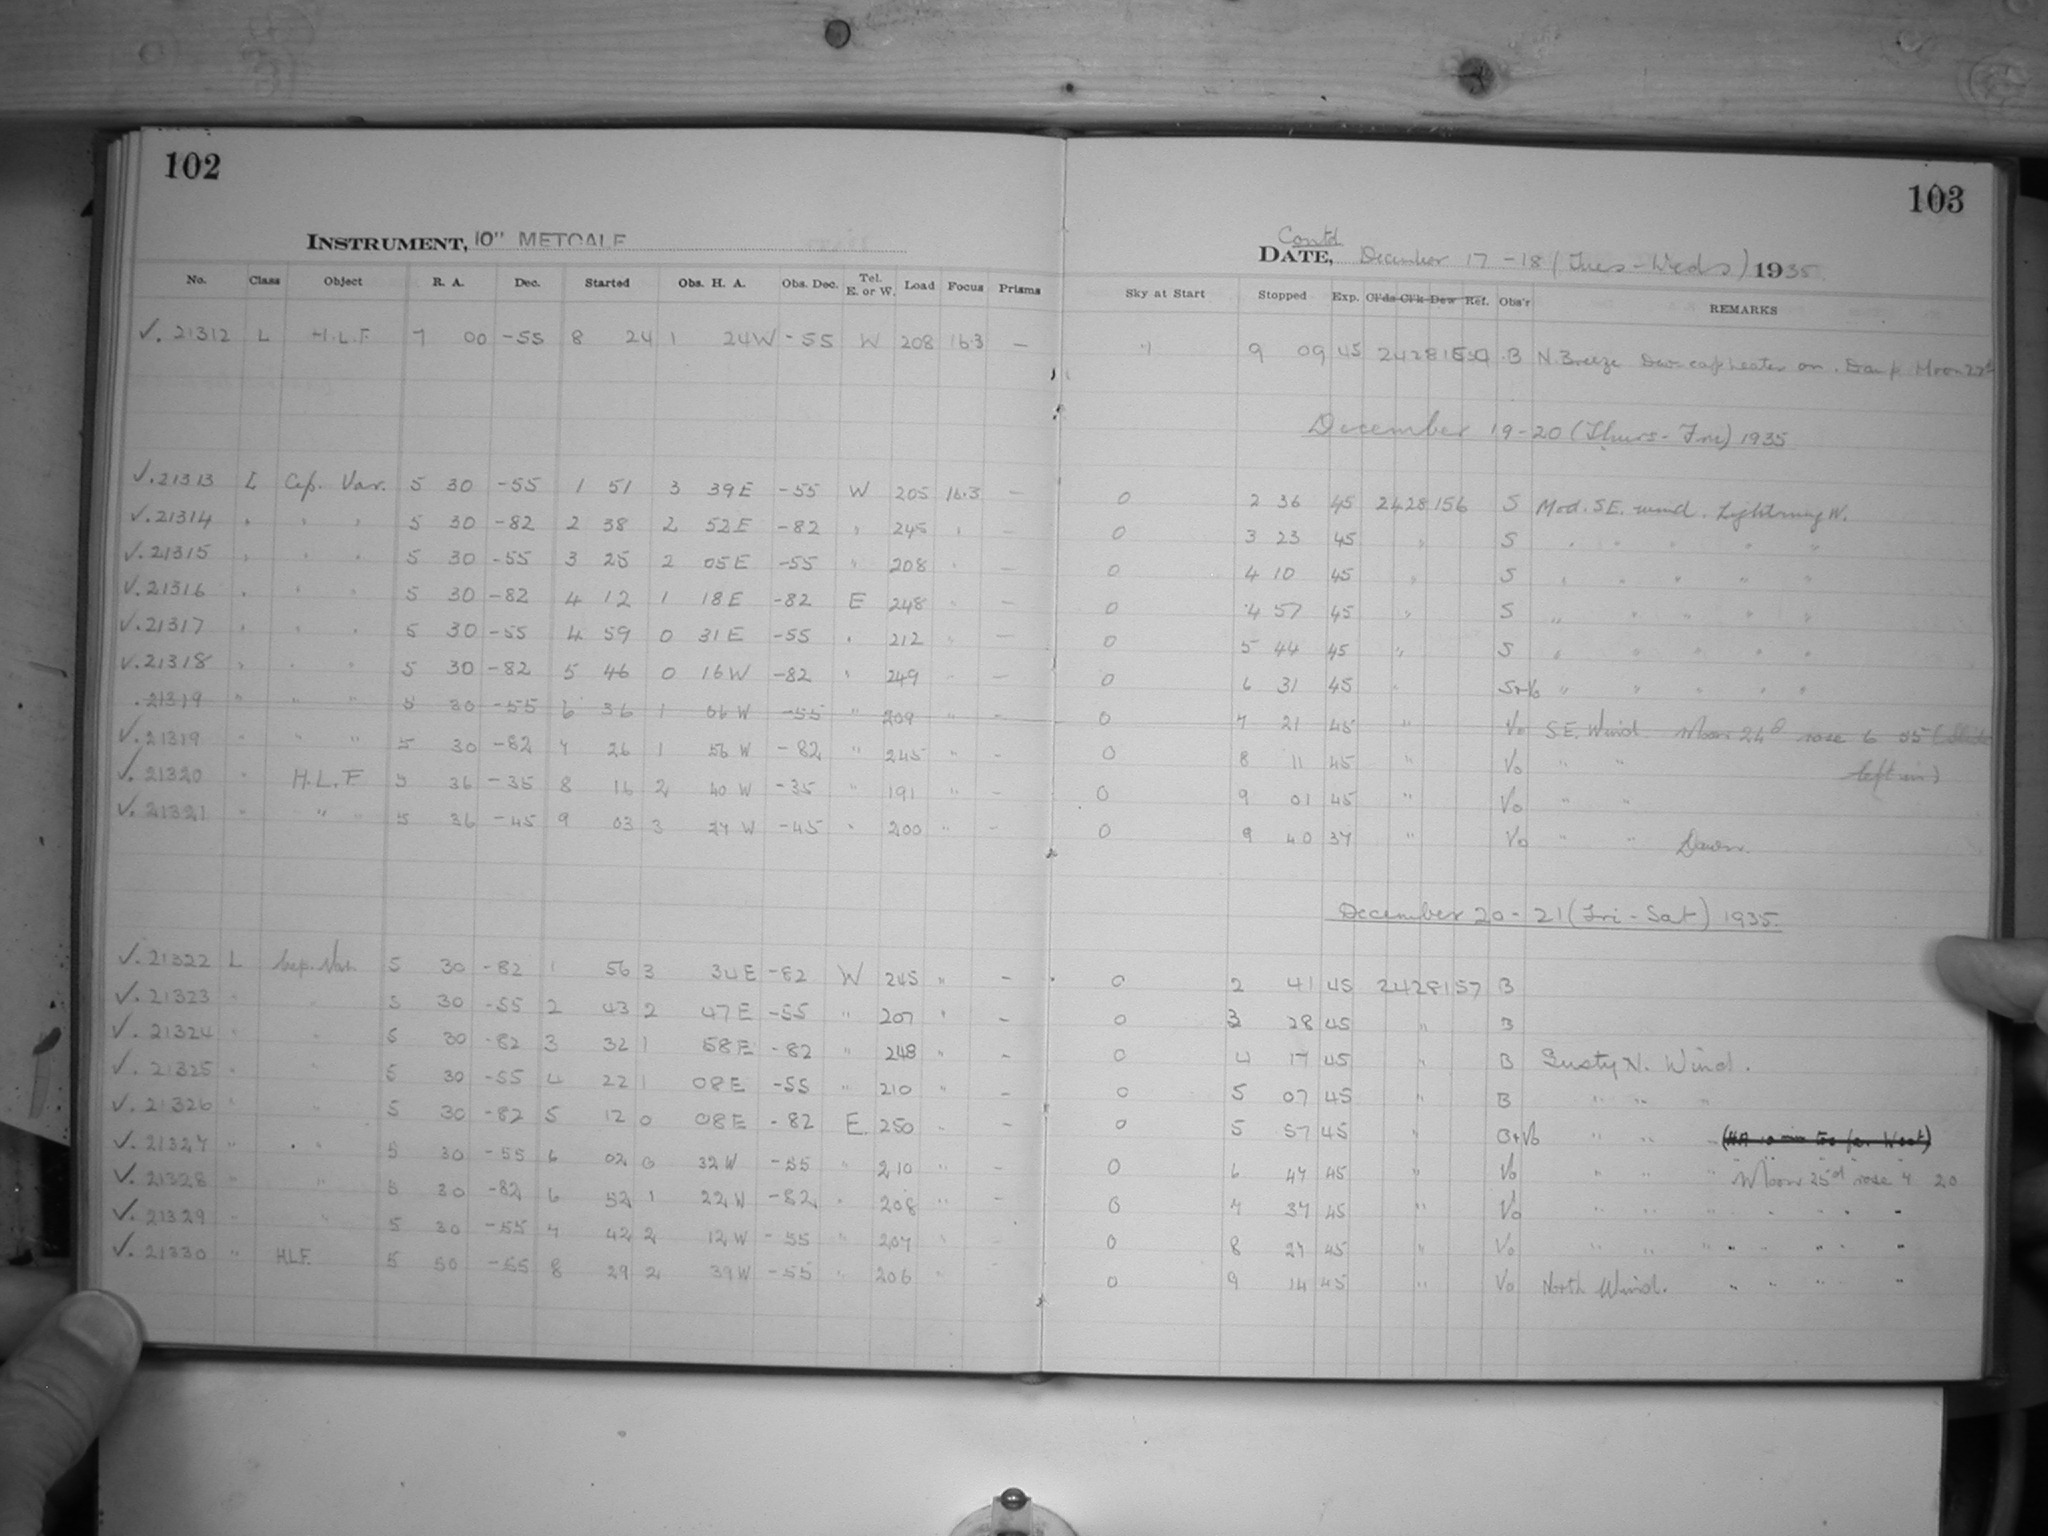 102
103
INSTRUMENT, 10" METCALF
Contd
DATE, December 17-18 (Tues-Weds) 1935
No. Class Object R. A. Dec. Started Obs. H. A. Obs. Dec. Tel. E. or W. Load Focus Prisms Sky at Start Stopped Exp. Cl'ds Cl'k Dew Ref. Obs'r REMARKS
√. 21312 L H.L.F. 7 00 -55 8 24 1 24W -55 W 208 16.3 — " 9 09 45 B N. Breeze Dew cap heater on. Damp Moon 22d
December 19-20 (Thurs-Fri) 1935
√. 21313 L Cep. Var. 5 30 -55 1 51 3 39E -55 W 205 16.3 — 0 2 36 45 2428156 S Mod. S.E. wind. Lightning W.
√. 21314 " " " 5 30 -82 2 38 2 52E -82 " 245 " — 0 3 23 45 " S " " " " "
√. 21315 " " " 5 30 -55 3 25 2 05E -55 " 208 " — 0 4 10 45 " S " " " " "
√. 21316 " " " 5 30 -82 4 12 1 18E -82 E 248 " — 0 4 57 45 " S " " " " "
√. 21317 " " " 5 30 -55 4 59 0 31E -55 " 212 " — 0 5 44 45 " S " " " " "
√. 21318 " " " 5 30 -82 5 46 0 16W -82 " 249 " — 0 6 31 45 " S+Vo " " " " "
. 21319 " " " 5 30 -55 6 36 1 06W -55 " 209 " — 0 7 21 45 " Vo S.E. Wind. Moon 24d rose 6 55 (Slide
√. 21319 " " " 5 30 -82 7 26 1 56W -82 " 245 " — 0 8 11 45 " Vo " " left in)
√. 21320 " H.L.F 5 36 -35 8 16 2 40W -35 " 191 " — 0 9 01 45 " Vo " "
√. 21321 " " " 5 36 -45 9 03 3 27W -45 " 200 " — 0 9 40 37 " Vo " " Dawn.
December 20-21 (Fri-Sat) 1935.
√. 21322 L Cep. Var. 5 30 -82 1 56 3 34E -82 W 245 " — 0 2 41 45 2428157 B
√. 21323 " " 5 30 -55 2 43 2 47E -55 " 207 " — 0 3 28 45 " B
√. 21324 " " 5 30 -82 3 32 1 58E -82 " 248 " — 0 4 17 45 " B Gusty N. Wind.
√. 21325 " " 5 30 -55 4 22 1 08E -55 " 210 " — 0 5 07 45 " B " " "
√. 21326 " " 5 30 -82 5 12 0 08E -82 E 250 " — 0 5 57 45 " B+Vo " " " (HA 10 min too far West)
√. 21327 " " " 5 30 -55 6 02 0 32W -55 " 210 " — 0 6 47 45 " Vo " " " Moon 25d rose 7 20
√. 21328 " 5 30 -82 6 52 1 22W -82 " 208 " — 0 7 37 45 " Vo " " " " " " "
√. 21329 " " 5 30 -55 7 42 2 12W -55 " 207 " — 0 8 27 45 " Vo " " " " " " "
√. 21330 " HLF. 5 50 -55 8 29 2 39W -55 " 206 " — 0 9 14 45 " Vo North Wind. " " " "